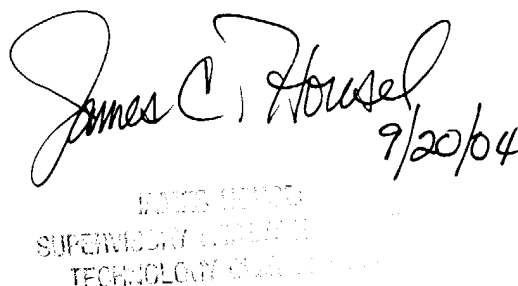 James C. Housel
9/20/04
SUPERVISORY
TECHNOLOGY